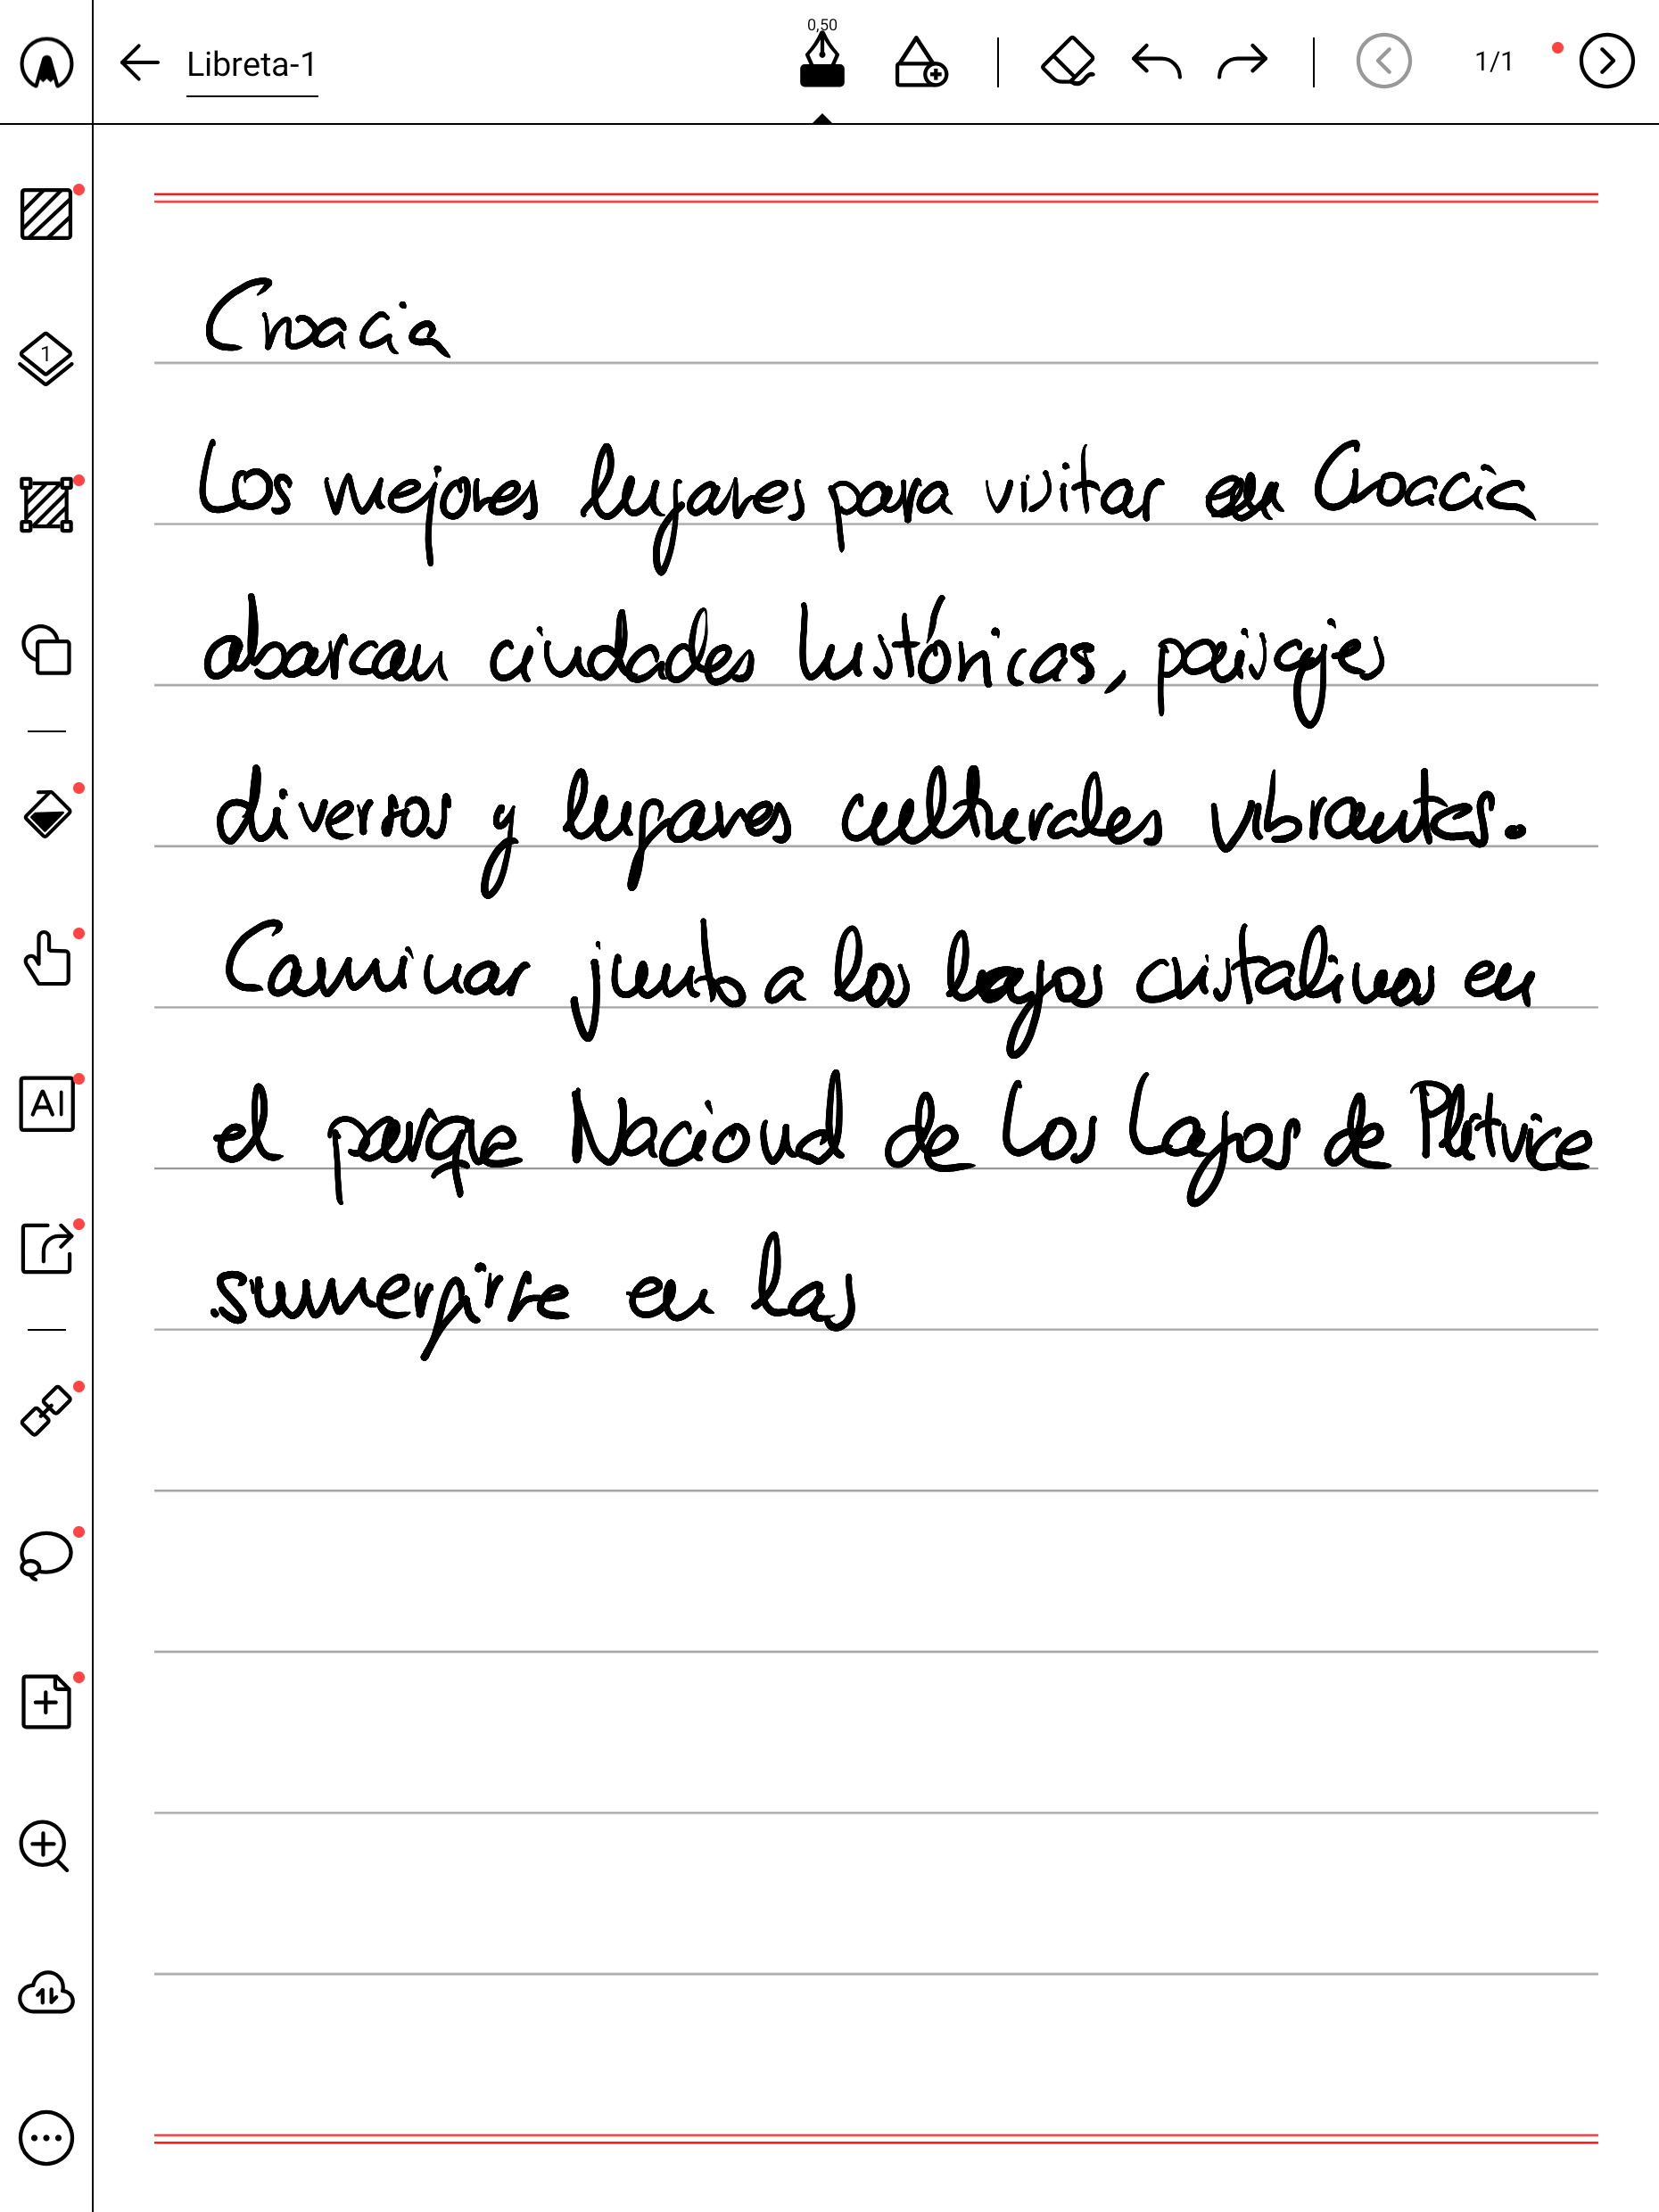 0,50
Libreta-1
1/1
1
Croacia
Los mejores lugares para visitar en Croacia
abarcan ciudades históricas, paisajes
diversos y lugares culturales vibrantes.
Caminar junto a los lagos cristalinos en
AI
el parque Nacional de Los Lagos de Plitvice
sumergirse en las